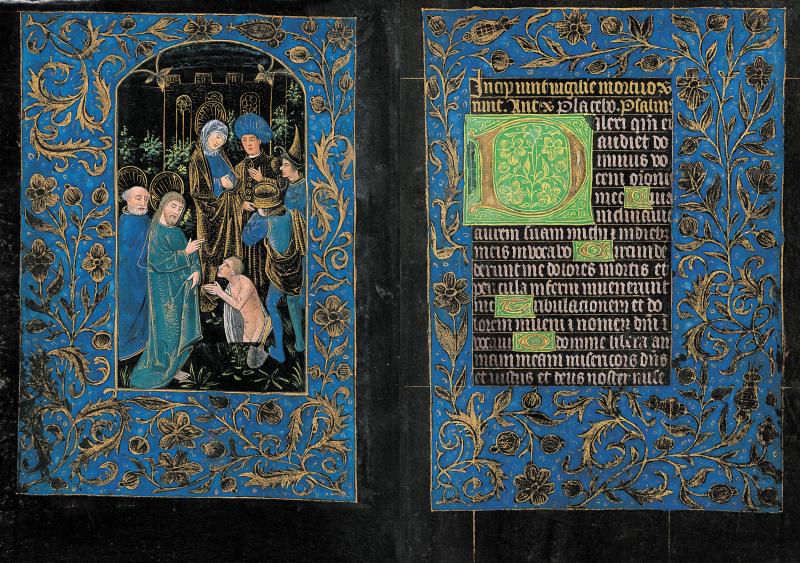 Incipiunt vigilie mortuoꝝ
Antꝰ Placebo. Psalmꝰ
Dilexi qm̄ ex
audiet do
minus vo
cem or̄onis
mee Quia
inclinauit
aurem suam michi ⁊ in dieb
meis inuocabo Circunde
derunt me dolores mortis et
pericula inferni inuenerunt
me Tribulacionem et do
lorem inueni ⁊ nomen dñi i
uocaui O domine libera an
imam meam misericors dñs
et iustus et deus noster mise